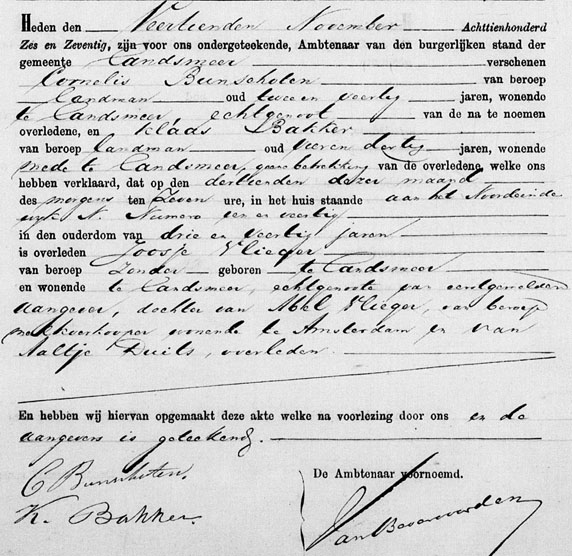 Heden den Veertienden November Achttienhonderd
Zes en Zeventig, zijn voor ons ondergeteekende, Ambtenaar van den burgerlijken stand der
gemeente Landsmeer verschenen
Cornelis Bunschoten van beroep
Landman oud twee en veertig jaren, wonende
te Landsmeer, echtgenoot van de na te noemen
overledene, en Klaas Bakker
van beroep landman oud vier en dertig jaren, wonende
mede te Landsmeer, geene betrekking van de overledene, welke ons
hebben verklaard, dat op den dertienden dezer maand
des morgens ten Zeven ure, in het huis staande aan het Noordeinde
wijk N. Numero een en veertig
in den ouderdom van drie en veertig jaren
is overleden Joosje Vlieger
van beroep Zonder geboren te Landsmeer
en wonende te Landsmeer, echtgenoote van eerstgemelden
aangever, dochter van Abel Vlieger, van beroep
melkverkooper wonende te Amsterdam en van
Aaltje Duils, overleden.
En hebben wij hiervan opgemaakt deze akte welke na voorlezing door ons en de
aangevers is geteekend.
C Bunschoten.
De Ambtenaar voornoemd.
K. Bakker.